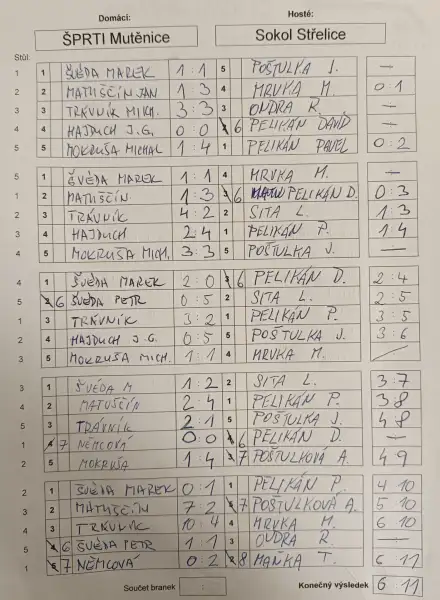 Domácí: Hosté:
ŠPRTI Mutěnice Sokol Střelice
Stůl:
1 1 ŠVÉDA MAREK 1 : 1 5 POŠTULKA J. —
2 2 MATUŠČÍN JAN 1 : 3 4 HRUKA M. 0 : 1
3 3 TRÁVNÍK MICH. 3 : 3 3 ONDRA R. —
4 4 HAJDUCH J.G. 0 : 0 6 PELIKÁN DAVID —
5 5 MOKRUŠA MICHAL 1 : 4 1 PELIKÁN PAVEL 0 : 2
5 1 ŠVÉDA MAREK 1 : 1 4 HRUKA M. —
1 2 MATUŠČÍN 1 : 3 6 PELIKÁN D. 0 : 3
2 3 TRÁVNÍK 4 : 2 2 SITA L. 1 : 3
3 4 HAJDUCH 2 : 4 1 PELIKÁN P. 1 4
4 5 MOKRUŠA MICH. 3 : 3 5 POŠTULKA J. —
4 1 ŠVÉDA MAREK 2 : 0 6 PELIKÁN D. 2 : 4
5 6 ŠVÉDA PETR 0 : 5 2 SITA L. 2 : 5
1 3 TRÁVNÍK 3 : 2 1 PELIKÁN P. 3 : 5
2 4 HAJDUCH J.G. 0 : 5 5 POŠTULKA J. 3 : 6
3 5 MOKRUŠA MICH. 1 : 1 4 HRUKA M. /
3 1 ŠVÉDA M 1 : 2 2 SITA L. 3 : 7
4 2 MATUŠČÍN 2 : 4 1 PELIKÁN P. 3 8
5 3 TRÁVNÍK 2 : 1 5 POŠTULKA J. 4 8
1 7 NĚMCOVÁ 0 : 0 6 PELIKÁN D. —
2 5 MOKRUŠA 1 : 4 7 POŠTULKOVÁ A. 4 9
2 1 ŠVÉDA MAREK 0 : 1 1 PELIKÁN P. 4 10
3 2 MATUŠČÍN 7 : 2 7 POŠTULKOVÁ A. 5 10
4 3 TRÁVNÍK 10 : 4 4 HRUKA M. 6 10
5 6 ŠVÉDA PETR 1 : 1 3 ONDRA R. —
1 7 NĚMCOVÁ 0 : 2 8 MAŇKA T. 6 11
Součet branek : Konečný výsledek 6 : 11